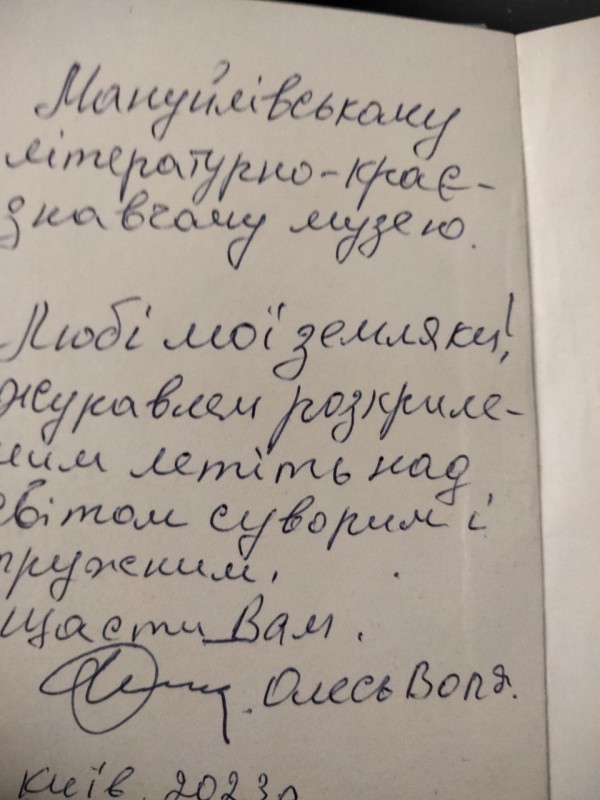 Мануйлівському
літературно-крає-
знавчому музею.
Любі мої земляки!
Журавлем розкриле-
ним летіть над
світом суворим і
пружним.
Щасти Вам.
Олесь Воля.
Київ, 2023р